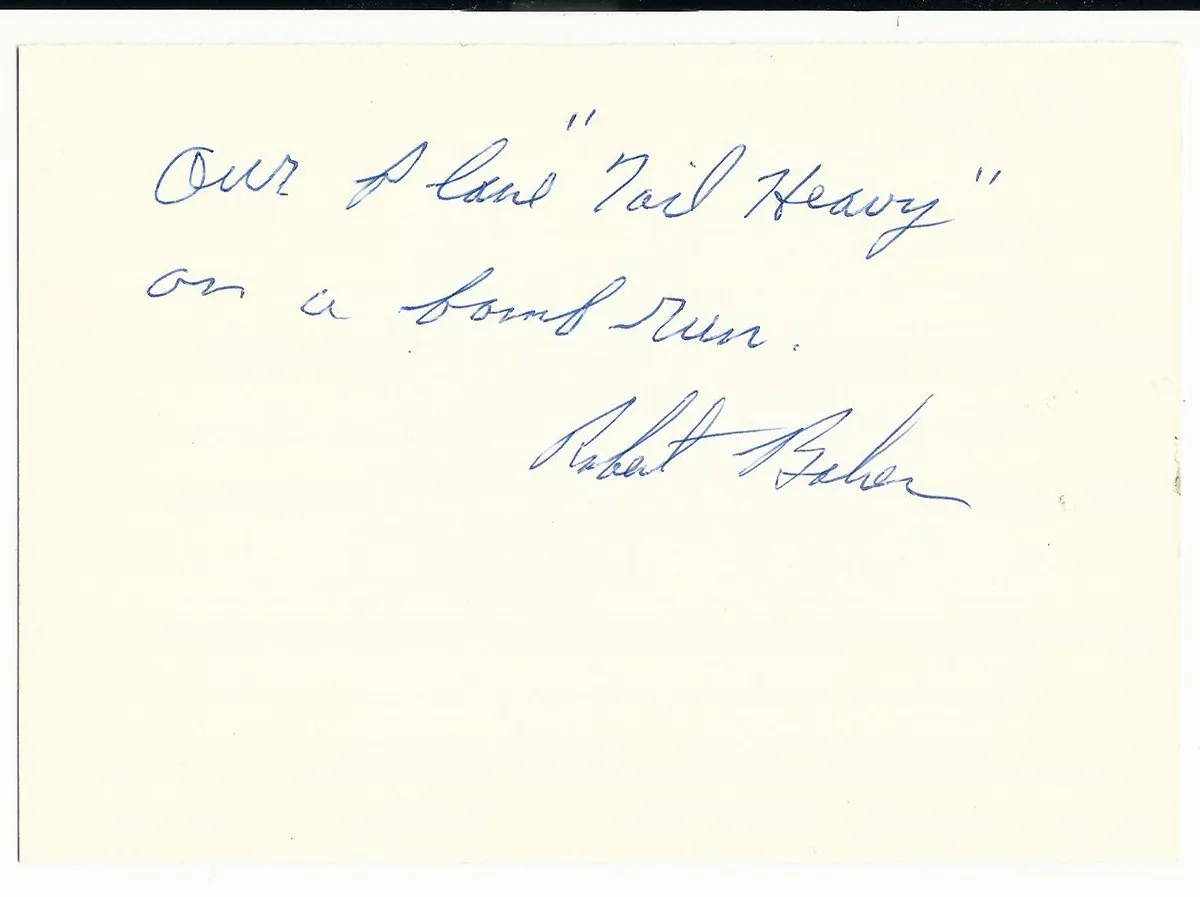 Our plane "Tail Heavy"
on a bomb run.
Robert Baher